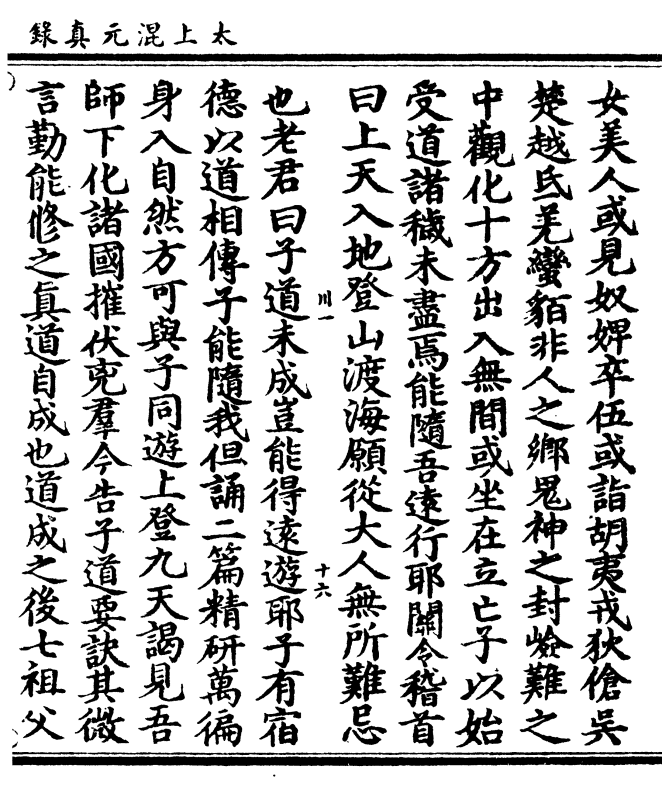 太上混元真錄
女美人或見奴婢卒伍或詣胡夷戎狄傖吳
楚越氐羌蠻貊非人之鄉鬼神之封嶮難之
中觀化十方出入無間或坐在立亡子以始
受道諸穢未盡焉能隨吾遠行耶關令稽首
曰上天入地登山渡海願從大人無所難忌
川一
十六
也老君曰子道未成豈能得遠遊耶子有宿
德以道相傳子能隨我但誦二篇精研萬徧
身入自然方可與子同遊上登九天謁見吾
師下化諸國摧伏兇羣今告子道要訣其微
言勤能修之眞道自成也道成之後七祖父